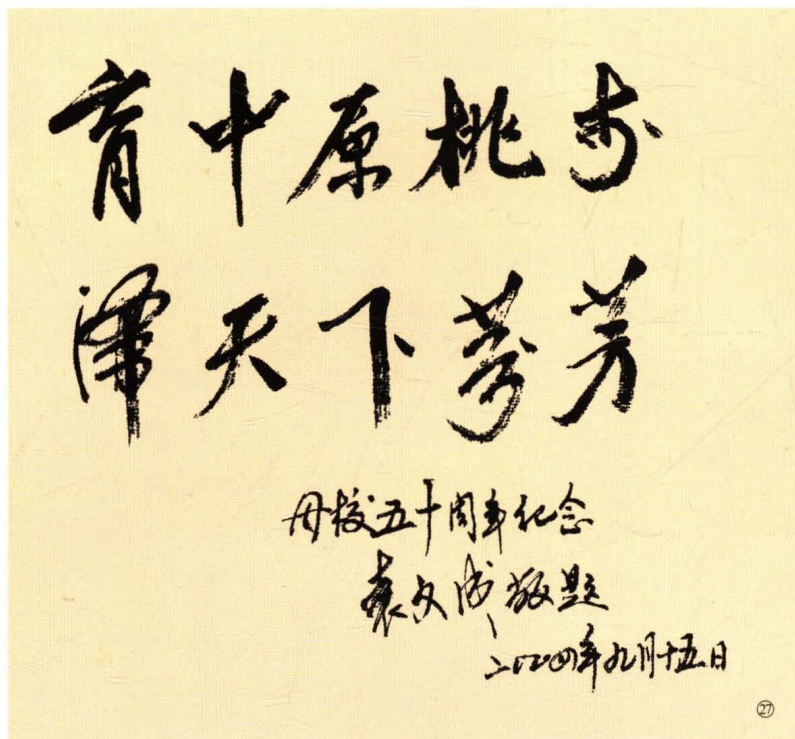 育中原桃李
泽天下芬芳
母校五十周年纪念
袁文成敬题
二〇〇四年九月十五日
㉗